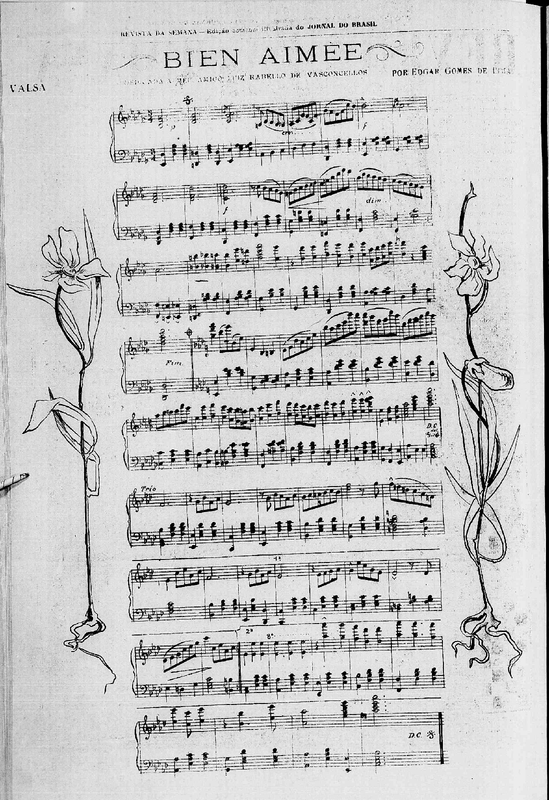 REVISTA DA SEMANA — Edição semanal illustrada do JORNAL DO BRASIL
BIEN AIMÉE
AMIGO LUIZ RABELLO DE VASCONCELLOS
POR EDGAR GOMES DE
VALSA
p
cres
f
f
dim
Fim
D.C.
Trio
1ª
2ª
8ª
D.C.